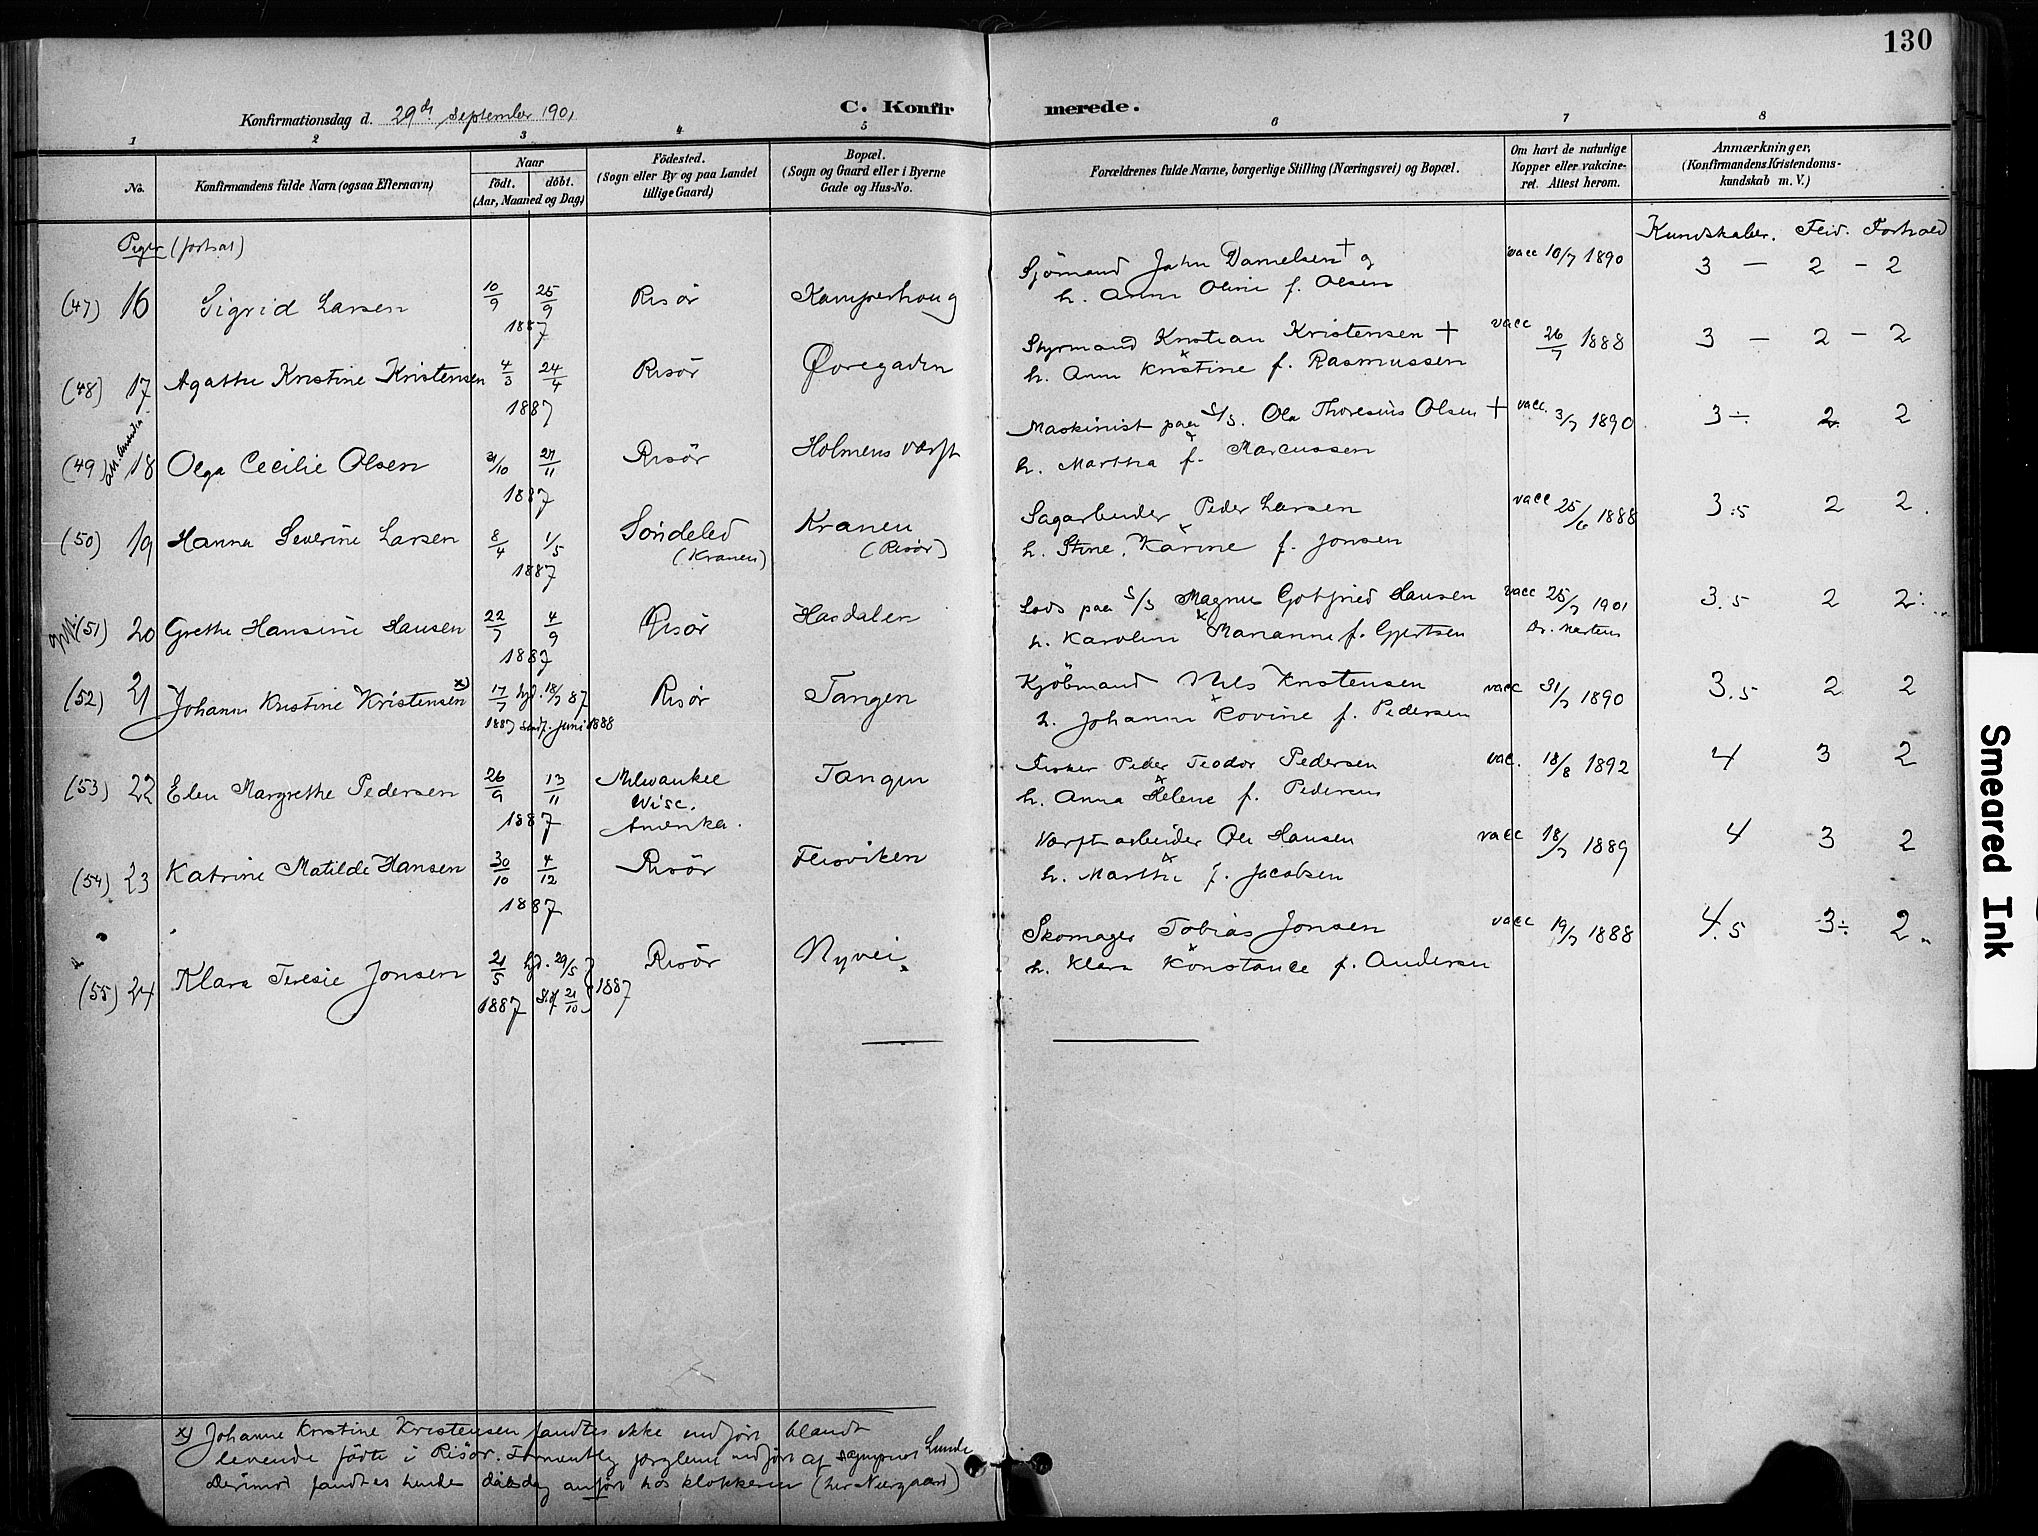 130
C. Konfirmerede.
Konfirmationsdag d. 29de September 1901
1 2 3 4 5 6 7 8
No.
Konfirmandens fulde Navn (ogsaa Efternavn)
Naar
födt. döbt.
(Aar, Maaned og Dag)
Födested.
(Sogn eller By og paa Landet
tillige Gaard)
Bopæl.
(Sogn og Gaard eller i Byerne
Gade og Hus-No.
Forældrenes fulde Navne, borgerlige Stilling (Næringsvei) og Bopæl.
Om havt de naturlige
Kopper eller vakcine-
ret. Attest herom.
Anmærkninger,
(Konfirmandens Kristendoms-
kundskab m. V.)
Kundskaber. Flid. Forhold
Piger (fortsat)
(47) 16 Sigrid Larsen 10/9 25/9 1887 Risör Kamperhoug
Sjömand Jahn Danielsen + og vacc 10/7 1890 3 — 2 - 2
h. Anne Oline f. Olsen
(48) 17 Agathe Kristine Kristensen 4/3 24/4 1887 Risör Øvregaden
Styrmand Kristian Kristensen + vacc 26/7 1888 3 — 2 - 2
h. Anne Kristine f. Rasmussen
(49) 18 Olga Cecilie Olsen 31/10 27/11 1887 Risör Holmens Værft
Maskinist paa S/S. Ole Thoresius Olsen + vacc. 3/7 1890 3 ÷ 2 2
h. Martha f. Marcussen
(50) 19 Hanna Severine Larsen 8/4 1/5 1887 Söndeled (Kranen) Kranen (Risör)
Sagarbeider Peder Larsen vacc 25/6 1888 3.5 2 2.
h. Stine Karine f. Jonsen
(51) 20 Grethe Hansine Hansen 22/7 4/9 1887 Risör Hasdalen
Lods paa S/S Magnus Gotfried Hansen vacc 25/7 1901 3.5 2 2
h. Karoline Marianne f. Gjertsen Dr. Martens
(52) 21 Johanne Kristine Kristensen x) 17/7 1887 hjd. 18/7 87 Juni 1888 Risör Tangen
Kjöbmand Nils Kristensen vacc 31/7 1890 3.5 2 2
h. Johanne Rovine f. Pedersen
(53) 22 Elen Margrethe Pedersen 26/9 13/11 1887 Milwaukee Tangen
Wisc.
Amerika.
Fisker Peder Teodor Pedersen vac. 18/8 1892 4 3 2
h. Anna Helene f. Pedersen
(54) 23 Katrine Matilde Hansen 30/10 4/12 1887 Risör Flisviken
Værftarbeider Ole Hansen vacc 18/7 1889 4 3 2
h. Marthe f. Jacobsen
(55) 24 Klara Teresie Jonsen 21/5 1887 hjd. 29/5 Stdf 21/10 1887 Risör Nyvei
Skomager Tobias Jonsen vacc 19/7 1888 4.5 3 ÷ 2
h. Klara Konstance f. Andersen
x) Johanne Kristine Kristensen fandtes ikke indfört blandt
levende födte i Risör. Formentlig forglemt indfört af sogneprest Lunde
Derimod fandtes hendes daabsdag anfört hos klokkeren (hr Neergaard)
Smeared Ink